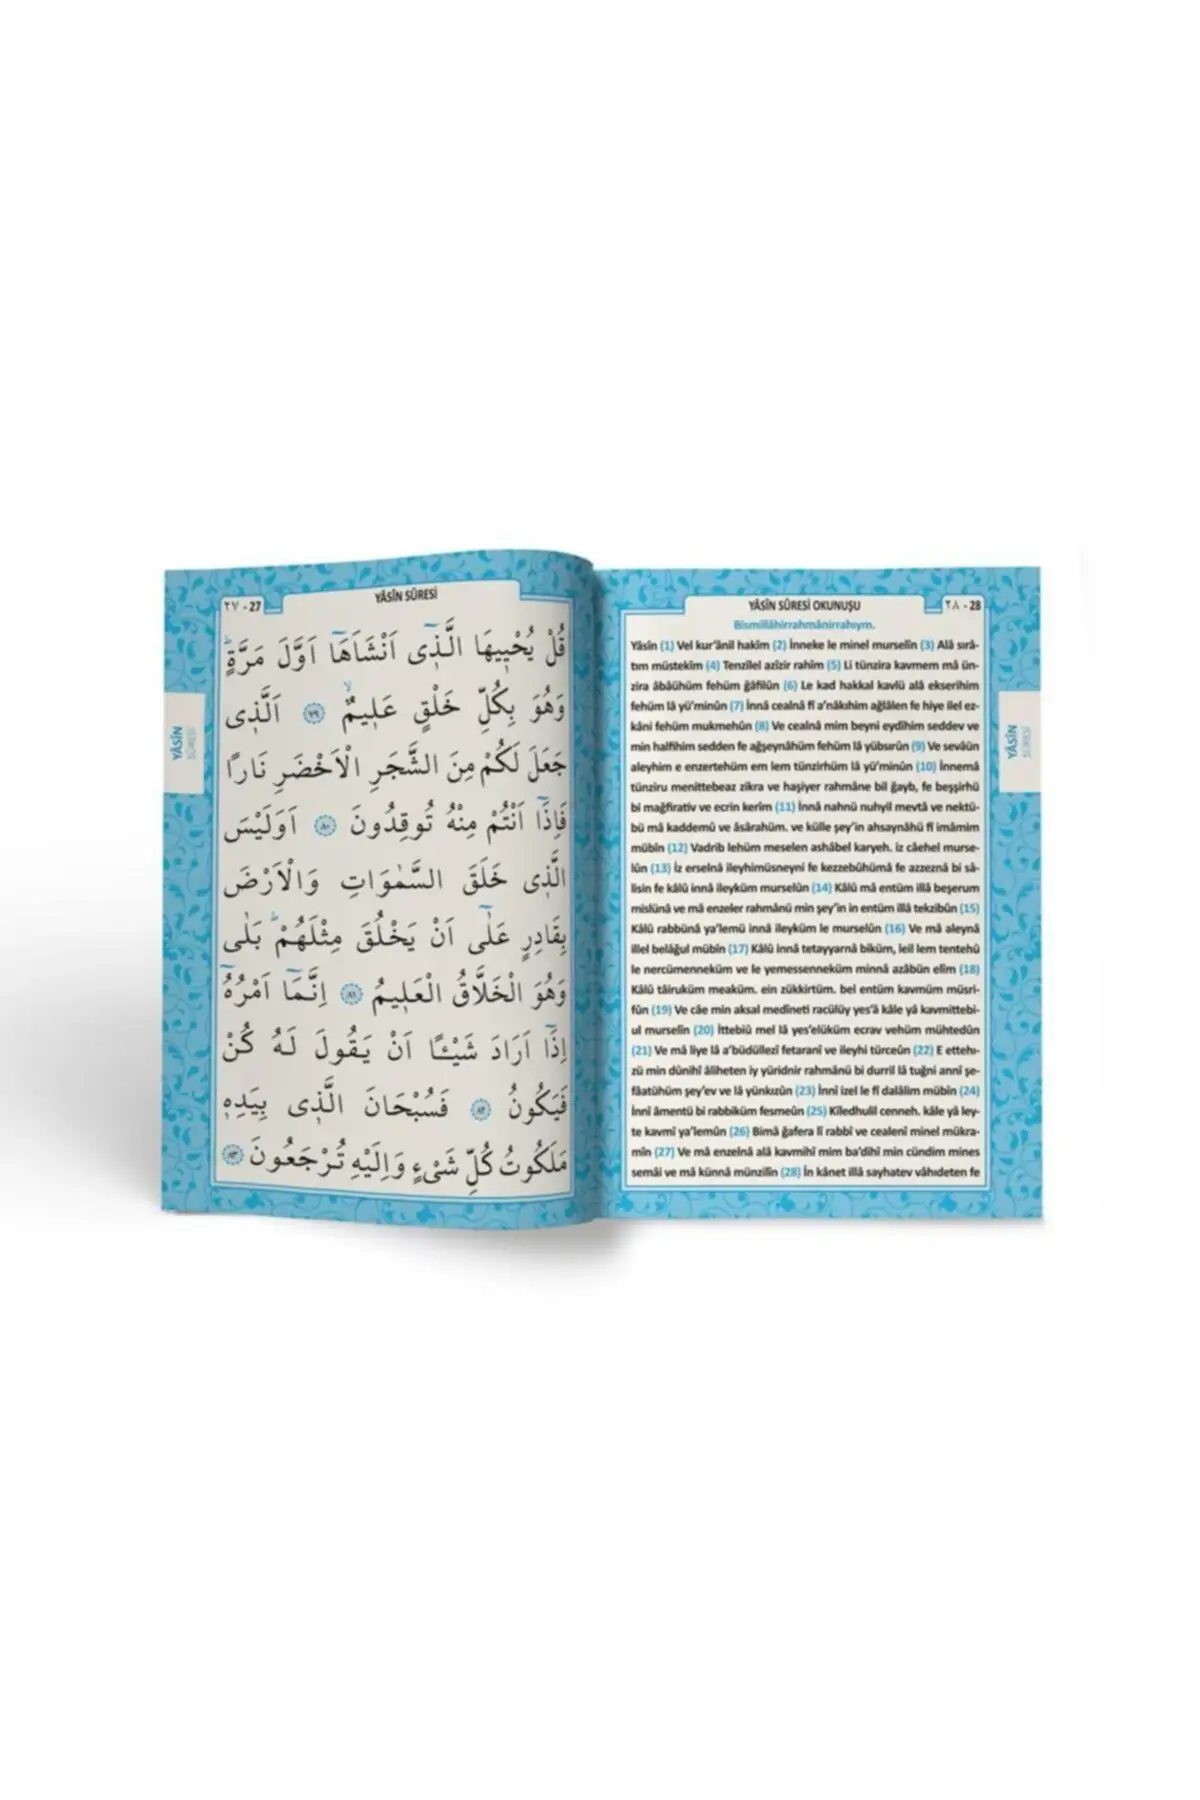 ٢٧ - 27
YÂSÎN SÛRESİ
قُلْ يُحْيٖيهَا الَّذٖٓى اَنْشَاَهَٓا اَوَّلَ مَرَّةٍؕ
وَهُوَ بِكُلِّ خَلْقٍ عَلٖيمٌۙ ﴿٧٩﴾ اَلَّذٖى
جَعَلَ لَكُمْ مِنَ الشَّجَرِ الْاَخْضَرِ نَارًا
فَاِذَٓا اَنْتُمْ مِنْهُ تُوقِدُونَ ﴿٨٠﴾ اَوَلَيْسَ
الَّذٖى خَلَقَ السَّمٰوَاتِ وَالْاَرْضَ
بِقَادِرٍ عَلٰٓى اَنْ يَخْلُقَ مِثْلَهُمْؕ بَلٰى
وَهُوَ الْخَلَّاقُ الْعَلٖيمُ ﴿٨١﴾ اِنَّمَٓا اَمْرُهُٓ
اِذَٓا اَرَادَ شَيْـًٔا اَنْ يَقُولَ لَهُ كُنْ
فَيَكُونُ ﴿٨٢﴾ فَسُبْحَانَ الَّذٖى بِيَدِهٖ
مَلَكُوتُ كُلِّ شَیْءٍ وَاِلَيْهِ تُرْجَعُونَ ﴿٨٣﴾
YÂSÎN
SÛRESİ
YÂSÎN SÛRESİ OKUNUŞU
٢٨ - 28
Bismillâhirrahmânirrahıym.
Yâsîn (1) Vel kur'ânil hakîm (2) İnneke le minel murselîn (3) Alâ sırâ-
tım müstekîm (4) Tenzîlel azîzir rahîm (5) Li tünzira kavmem mâ ün-
zira âbâühüm fehüm ğâfilûn (6) Le kad hakkal kavlü alâ ekserihim
fehüm lâ yü'minûn (7) İnnâ cealnâ fî a'nâkıhim ağlâlen fe hiye ilel ez-
kâni fehüm mukmehûn (8) Ve cealnâ mim beyni eydîhim seddev ve
min halfihim sedden fe ağşeynâhüm fehüm lâ yübsırûn (9) Ve sevâün
aleyhim e enzertehüm em lem tünzirhüm lâ yü'minûn (10) İnnemâ
tünziru menittebeaz zikra ve haşiyer rahmâne bil ğayb, fe beşşirhü
bi mağfirativ ve ecrin kerîm (11) İnnâ nahnü nuhyil mevtâ ve nektü-
bü mâ kaddemû ve âsârahüm. ve külle şey'in ahsaynâhü fî imâmim
mübîn (12) Vadrib lehüm meselen ashâbel karyeh. iz câehel murse-
lûn (13) İz erselnâ ileyhimüsneyni fe kezzebûhümâ fe azzeznâ bi sâ-
lisin fe kâlû innâ ileyküm murselûn (14) Kâlû mâ entüm illâ beşerum
mislünâ ve mâ enzeler rahmânü min şey'in in entüm illâ tekzibûn (15)
Kâlû rabbünâ ya'lemü innâ ileyküm le murselûn (16) Ve mâ aleynâ
illel belâğul mübîn (17) Kâlû innâ tetayyarnâ biküm, leil lem tentehû
le nercümenneküm ve le yemessenneküm minnâ azâbün elîm (18)
Kâlû tâiruküm meaküm. ein zükkirtüm. bel entüm kavmüm müsri-
fûn (19) Ve câe min aksal medîneti racülüy yes'â kâle yâ kavmittebi-
ul murselîn (20) İttebiû mel lâ yes'elüküm ecrav vehüm mühtedûn
(21) Ve mâ liye lâ a'büdüllezî fetaranî ve ileyhi türceûn (22) E ettehı-
zü min dûnihî âliheten iy yüridnir rahmânü bi durril lâ tuğni annî şe-
fâatühüm şey'ev ve lâ yünkızûn (23) İnnî izel le fî dalâlim mübîn (24)
İnnî âmentü bi rabbiküm fesmeûn (25) Kîledhulil cenneh. kâle yâ ley-
te kavmî ya'lemûn (26) Bimâ ğafera lî rabbî ve cealenî minel mükra-
mîn (27) Ve mâ enzelnâ alâ kavmihî mim ba'dihî min cündim mines
semâi ve mâ künnâ münzilîn (28) İn kânet illâ sayhatev vâhıdeten fe
YÂSÎN
SÛRESİ